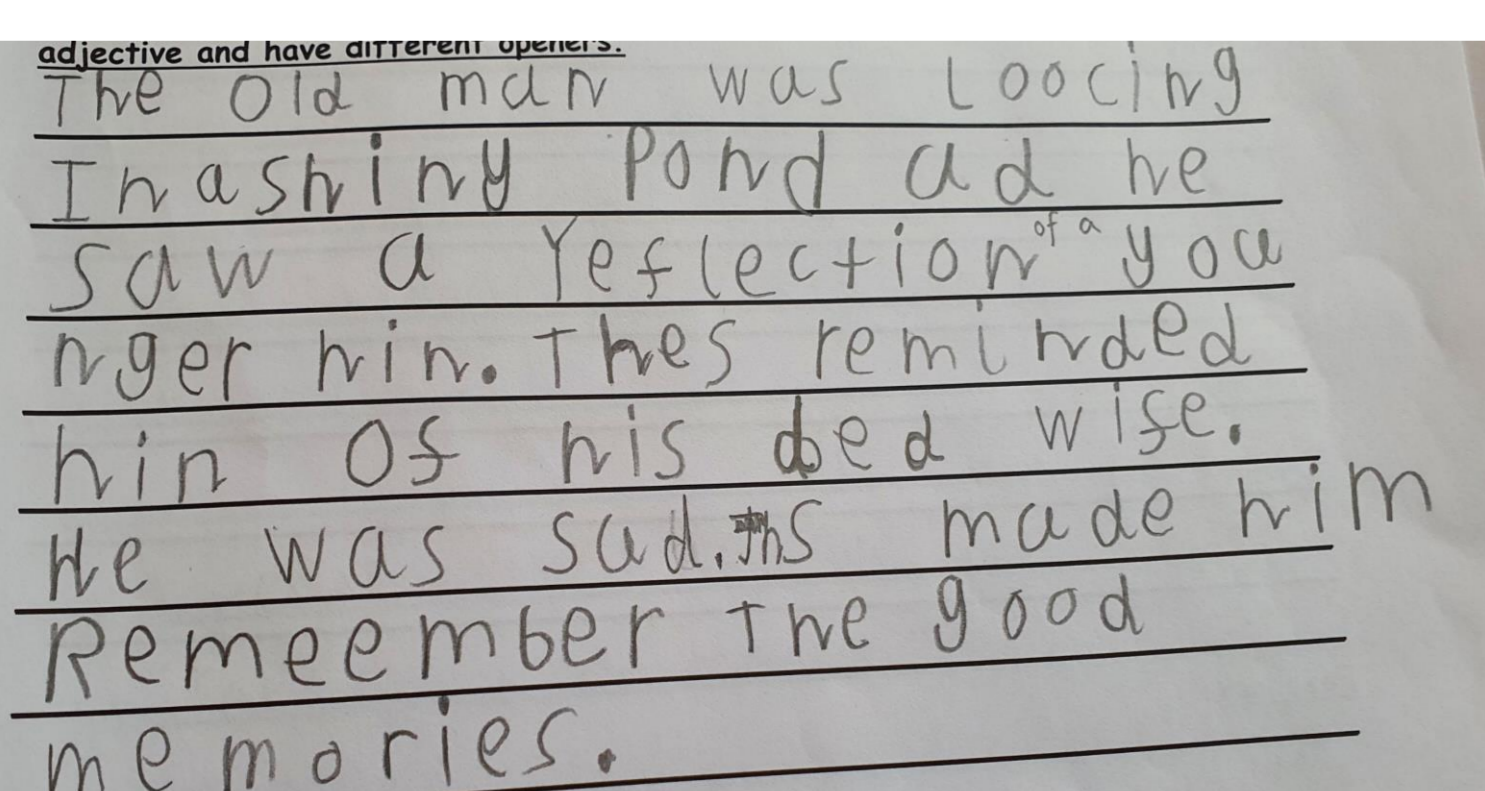 adjective and have different openers.
The old man was loocing
In ashiny Pond ad he
saw a reflection of a you
nger hin. Thes reminded
hin Of his ded wife.
He was sad. Ths made him
Remeember the good
memories.